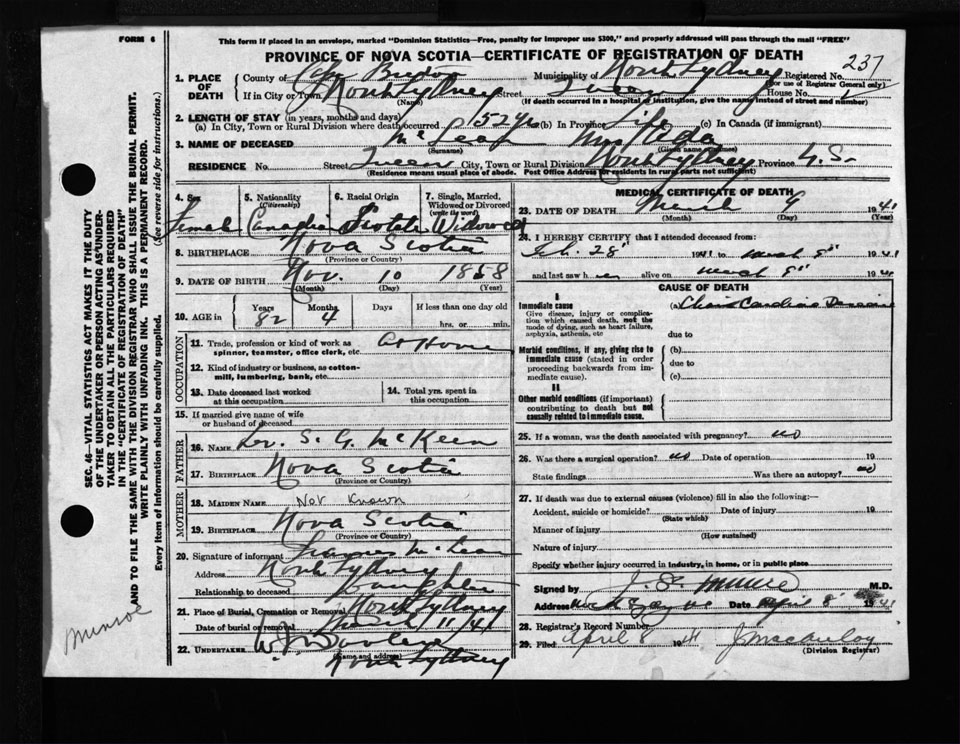 FORM 6
This form if placed in an envelope, marked "Dominion Statistics—Free, penalty for improper use $300," and properly addressed will pass through the mail "FREE"
PROVINCE OF NOVA SCOTIA—CERTIFICATE OF REGISTRATION OF DEATH
237
1. PLACE OF DEATH County of Cape Breton Municipality of North Sydney Registered No.
(For use of Registrar General only)
If in City or Town North Sydney Street Queen House No.
(Name) (If death occurred in a hospital or institution, give the name instead of street and number)
2. LENGTH OF STAY (in years, months and days)
(a) In City, Town or Rural Division where death occurred 52 yrs (b) In Province Life (c) In Canada (if immigrant)
3. NAME OF DECEASED McLean Mrs Ada
(Surname) (Given names)
RESIDENCE No. Street Queen City, Town or Rural Division North Sydney Province N.S.
(Residence means usual place of abode. Post Office Address for residents in rural parts not sufficient)
4. Sex 5. Nationality (Citizenship) 6. Racial Origin 7. Single, Married, Widowed or Divorced (write the word)
Female Canadian Scotch Widowed
8. BIRTHPLACE Nova Scotia
(Province or Country)
9. DATE OF BIRTH Nov. 10 1858
(Month) (Day) (Year)
10. AGE in Years Months Days If less than one day old
82 4 hrs. or min.
OCCUPATION
11. Trade, profession or kind of work as spinner, teamster, office clerk, etc. At Home
12. Kind of industry or business, as cotton-mill, lumbering, bank, etc.
13. Date deceased last worked at this occupation
14. Total yrs. spent in this occupation
15. If married give name of wife or husband of deceased
FATHER
16. NAME Rev. S. G. McKeen
17. BIRTHPLACE Nova Scotia
(Province or Country)
MOTHER
18. MAIDEN NAME Not Known
19. BIRTHPLACE Nova Scotia
(Province or Country)
20. Signature of informant McLean
Address North Sydney
Relationship to deceased Daughter
21. Place of Burial, Cremation or Removal North Sydney
Date of burial or removal March 11/41
22. UNDERTAKER
(Name and address)
North Sydney
MEDICAL CERTIFICATE OF DEATH
23. DATE OF DEATH March 9 1941
(Month) (Day) (Year)
24. I HEREBY CERTIFY that I attended deceased from:
Feb. 28" 1941 to March 9" 1941
and last saw her alive on March 9" 1941
CAUSE OF DEATH
I
Immediate cause
Give disease, injury or complication which caused death, not the mode of dying, such as heart failure, asphyxia, asthenia, etc
(a) Cardiac Disease
due to
Morbid conditions, if any, giving rise to immediate cause (stated in order proceeding backwards from immediate cause).
(b)
due to
(c)
II
Other morbid conditions (if important) contributing to death but not causally related to immediate cause.
25. If a woman, was the death associated with pregnancy? no
26. Was there a surgical operation? no Date of operation 19
State findings Was there an autopsy? no
27. If death was due to external causes (violence) fill in also the following:—
Accident, suicide or homicide? Date of injury 19
(State which)
Manner of injury
(How sustained)
Nature of injury
Specify whether injury occurred in industry, in home, or in public place
Signed by M.D.
Address Date April 8 1941
28. Registrar's Record Number
29. Filed April 8 1941 J MacAulay
(Division Registrar)
SEC. 46—VITAL STATISTICS ACT MAKES IT THE DUTY
OF THE UNDERTAKER OR PERSON ACTING AS UNDER-
TAKER TO OBTAIN ALL THE PARTICULARS REQUIRED
IN THE "CERTIFICATE OF REGISTRATION OF DEATH"
AND TO FILE THE SAME WITH THE DIVISION REGISTRAR WHO SHALL ISSUE THE BURIAL PERMIT.
WRITE PLAINLY WITH UNFADING INK. THIS IS A PERMANENT RECORD.
Every item of information should be carefully supplied. (See reverse side for instructions.)
Munroe